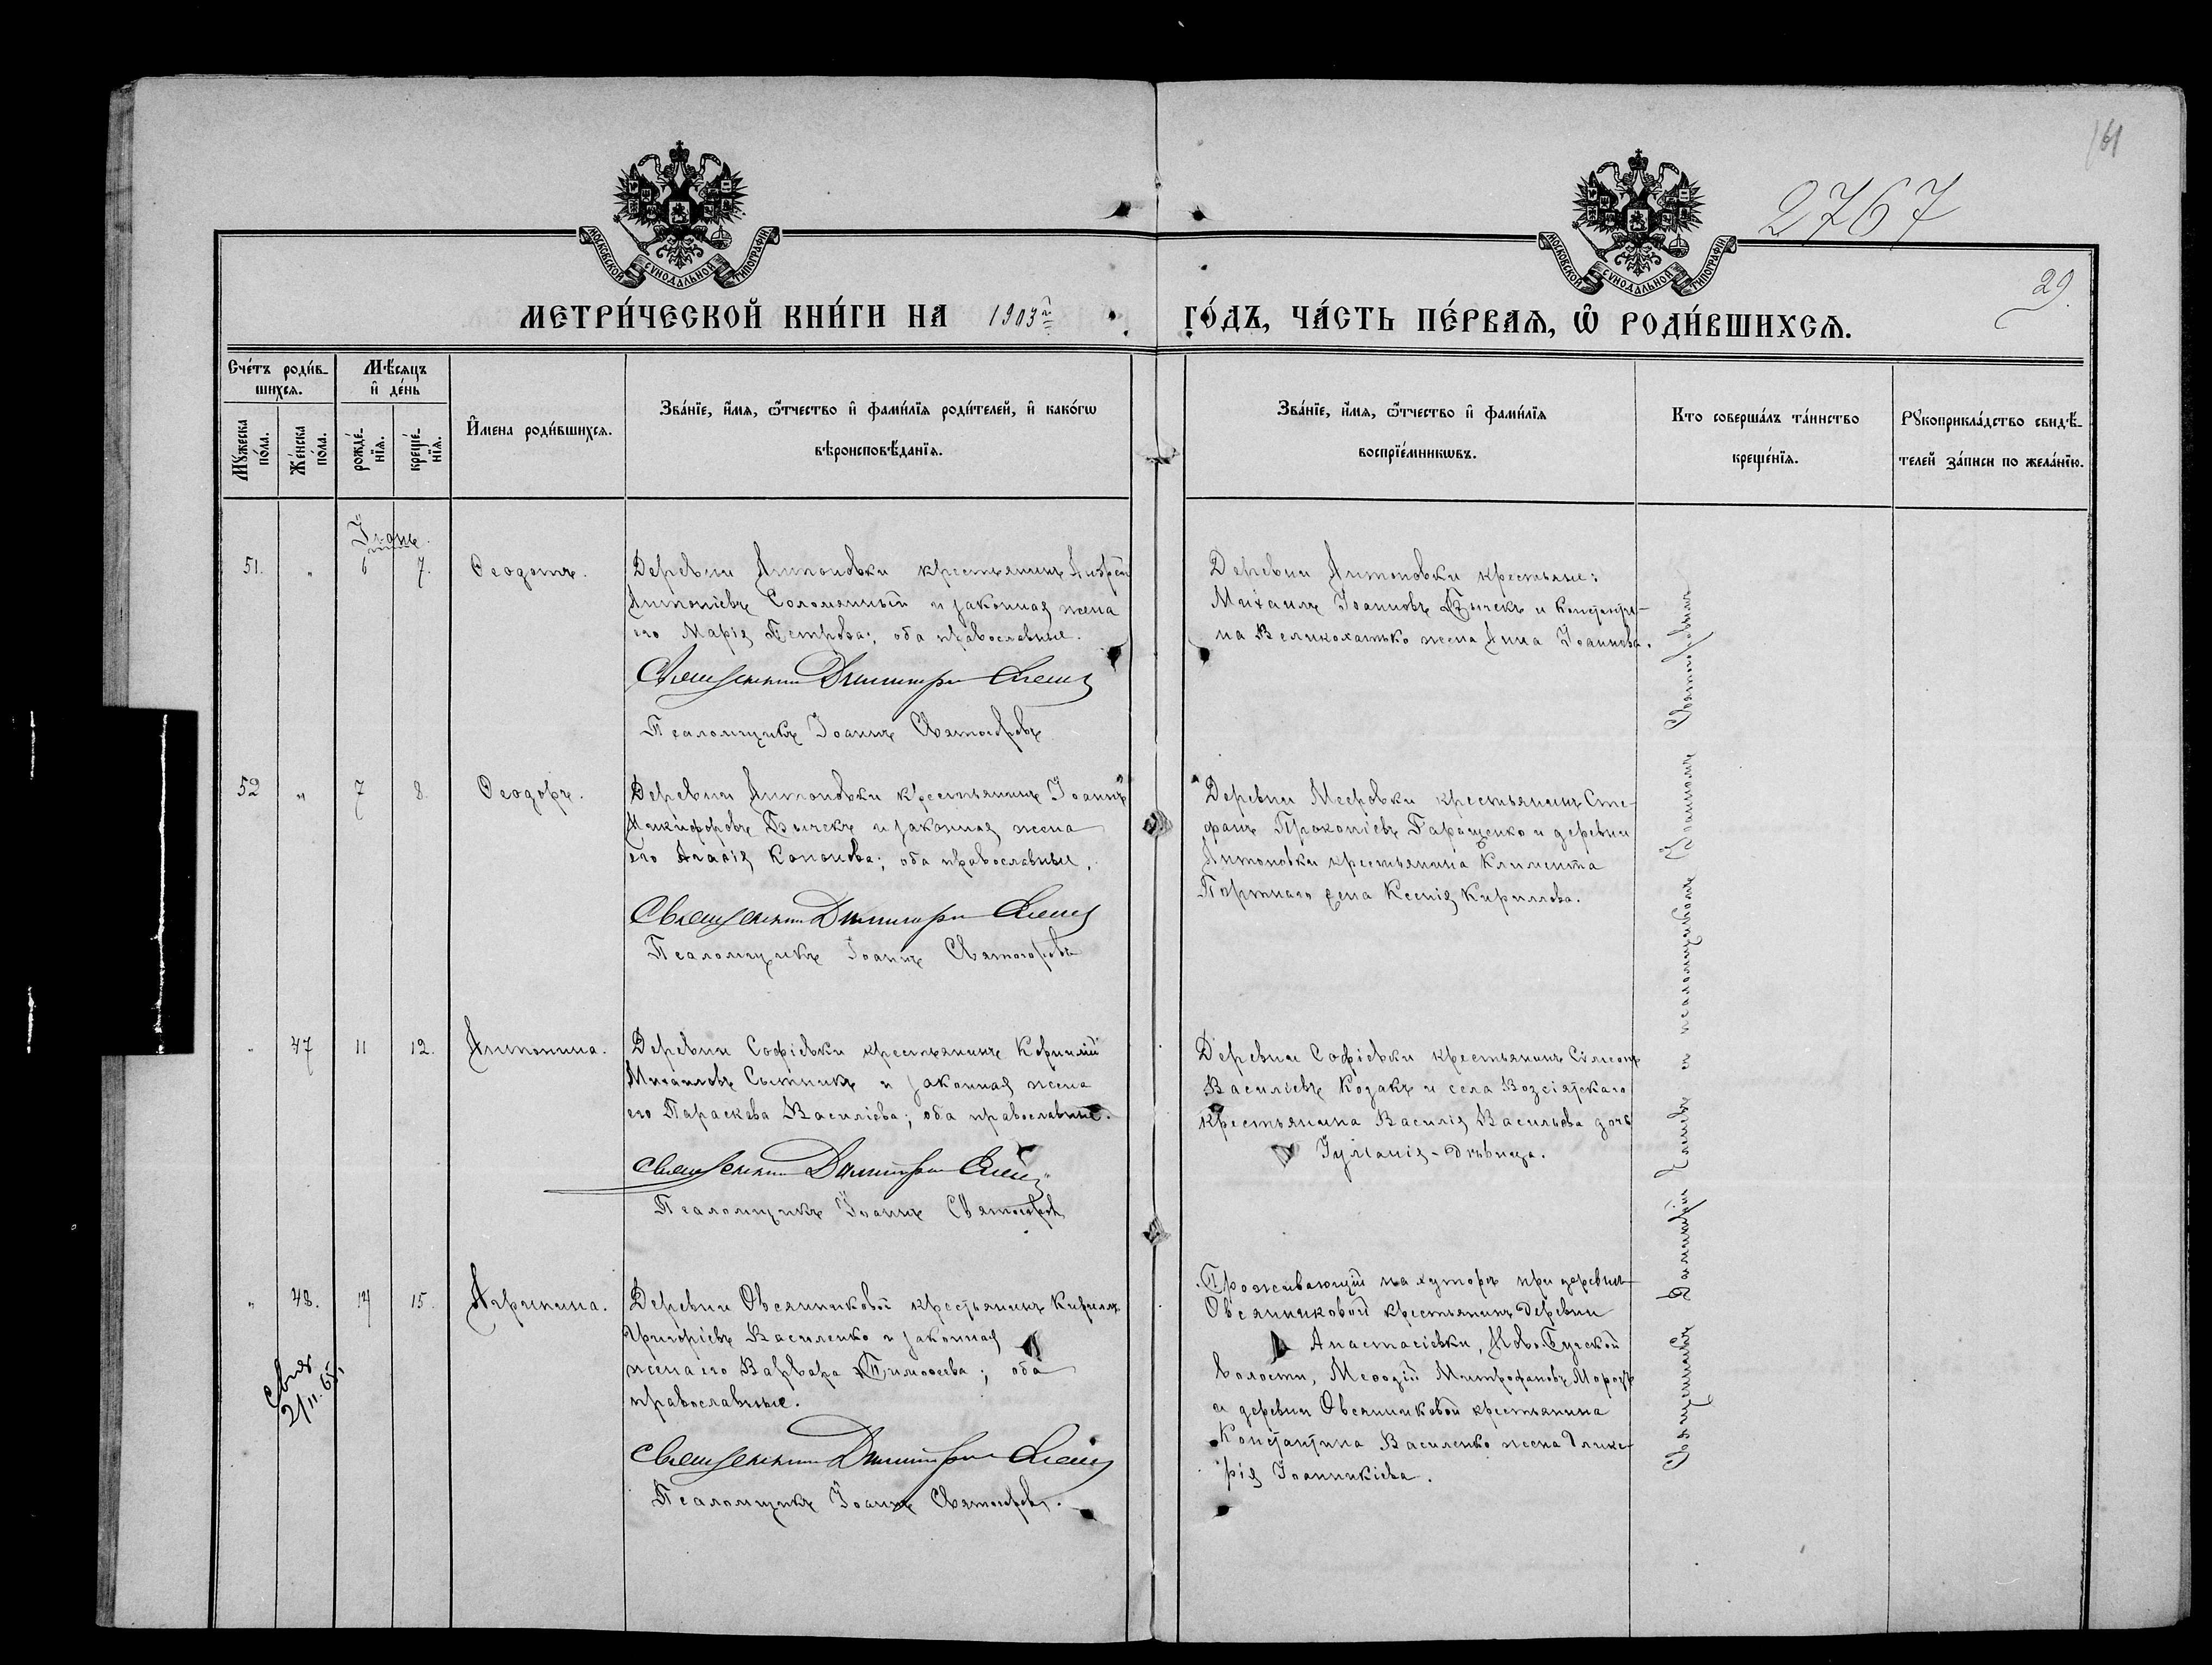 161
2767
29.
МОСКОВСКОЙ СѴНОДАЛЬНОЙ ТИПОГРАФІИ
МОСКОВСКОЙ СѴНОДАЛЬНОЙ ТИПОГРАФІИ
МЕТРИ́ЧЕСКОЙ КНИ́ГИ НА 1903й ГО́ДЪ, ЧА́СТЬ ПЕ́РВАЯ, Ѽ РОДИ́ВШИХСЯ.
Сче́тъ роди́в-
шихся.
Му́жеска по́ла.
Же́нска по́ла.
Мѣ́сяцъ
и҆ де́нь
рожде́-
нїя.
креще́-
нїя.
И҆́мена роди́вшихся.
Зва́нїе, и҆́мя, ѻ҆́тчество и҆ фами́лїя роди́телей, и҆ како́гѡ
вѣроисповѣ́данїя.
Зва́нїе, и҆́мя, ѻ҆́тчество и҆ фами́лїя
воспрїе́мникѡвъ.
Кто соверша́лъ та́инство
креще́нїя.
Рꙋкоприкла́дство свидѣ́-
телей за́писи по жела́нїю.
Іюнь.
51. " 6 7. Ѳеодотъ.
Деревни Антоновки крестьянинъ Андрей
Антоніевъ Соломянный и законная жена
его Марія Петрова; оба православные.
Священникъ Димитрій
Псаломщикъ Іоаннъ Святогоровъ
Деревни Антоновки крестьяне:
Михаилъ Іоанновъ Бычекъ и Константи-
на Великохатько жена Анна Іоаннова.
52 " 7 8. Ѳеодоръ.
Деревни Антоновки крестьянинъ Іоаннъ
Никифоровъ Бычекъ и законная жена
его Агафія Кононова; оба православные.
Священникъ Димитрій
Псаломщикъ Іоаннъ Святогоровъ
Деревни Меѳровки крестьянинъ Сте-
фанъ Прокопіевъ Гаращенко и деревни
Антоновки крестьянина Климента
Портнаго жена Ксенія Кириллова.
" 47 11 12. Антонина.
Деревни Софіевки крестьянинъ Корнилій
Михаиловъ Сытникъ и законная жена
его Параскева Василіева; оба православные.
Священникъ Димитрій
Псаломщикъ Іоаннъ Святогоровъ
Деревни Софіевки крестьянинъ Сѵмеонъ
Василіевъ Козакъ и села Возсіятскаго
крестьянина Василія Васильева дочь
Іуліанія - дѣвица.
" 48. 14 15. Агрипина.
Деревни Овсянниковой крестьянинъ Кириллъ
Григоріевъ Василенко и законная
жена его Варвара Тимоѳеева; оба
православные.
Священникъ Димитрій
Псаломщикъ Іоаннъ Святогоровъ.
2/II.65.
Проживающій на хуторѣ при деревнѣ
Овсянниковой крестьянинъ деревни
Анастасіевки, Ново-Бугской
волости, Меѳодій Митрофановъ Морозъ
и деревни Овсянниковой крестьянина
Константина Василенко жена Глике-
рія Іоанникіева.
Священникъ Димитрій и псаломщикомъ Іоанномъ Святогоровымъ